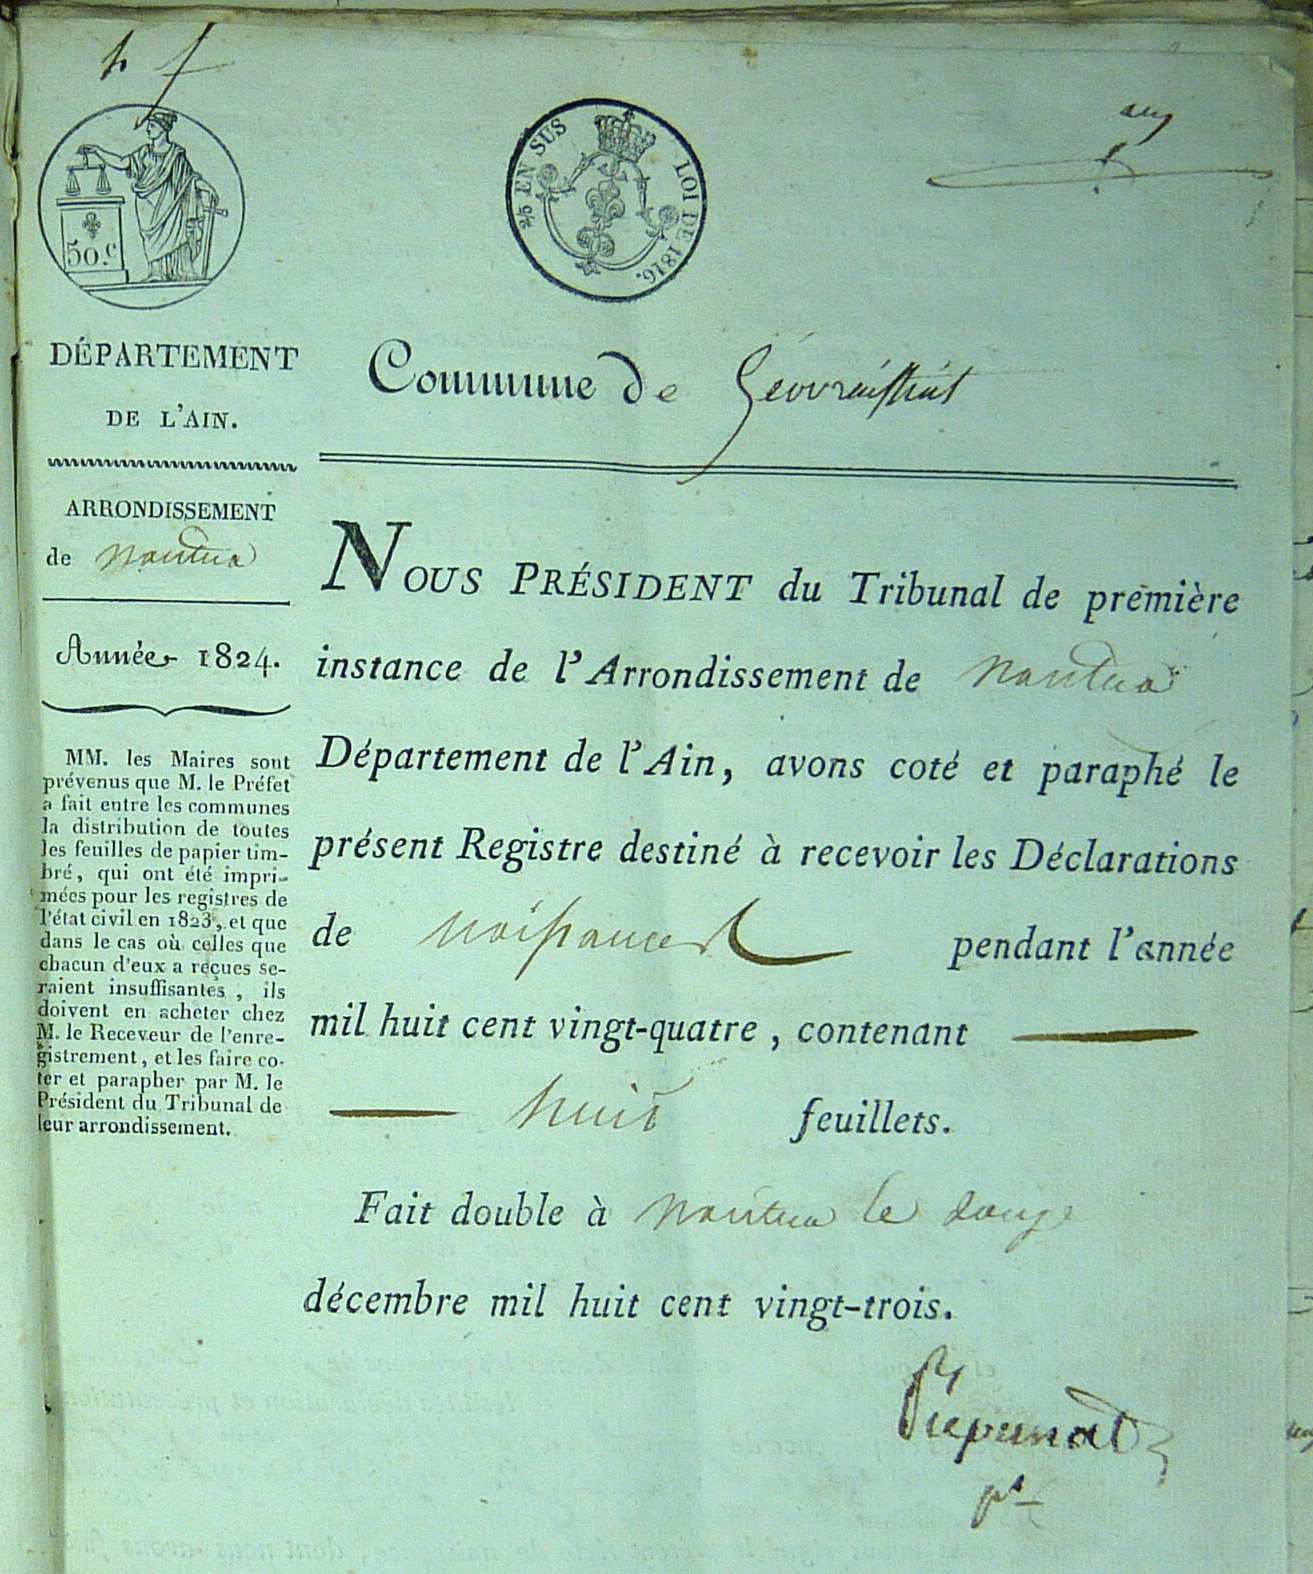 50.c
2/5 EN SUS
LOI DE 1816.
DÉPARTEMENT
DE L'AIN.
ARRONDISSEMENT
de nantua
Année 1824.
MM. les Maires sont
prévenus que M. le Préfet
a fait entre les communes
la distribution de toutes
les feuilles de papier tim-
bré, qui ont été impri-
mées pour les registres de
l'état civil en 1823, et que
dans le cas où celles que
chacun d'eux a reçues se-
raient insuffisantes, ils
doivent en acheter chez
M. le Receveur de l'enre-
gistrement, et les faire co-
ter et parapher par M. le
Président du Tribunal de
leur arrondissement.
Commune de Géovreissiat
NOUS PRÉSIDENT du Tribunal de première
instance de l'Arrondissement de nantua
Département de l'Ain, avons coté et paraphé le
présent Registre destiné à recevoir les Déclarations
de naissances pendant l'année
mil huit cent vingt-quatre, contenant
huit feuillets.
Fait double à nantua le douze
décembre mil huit cent vingt-trois.
pt